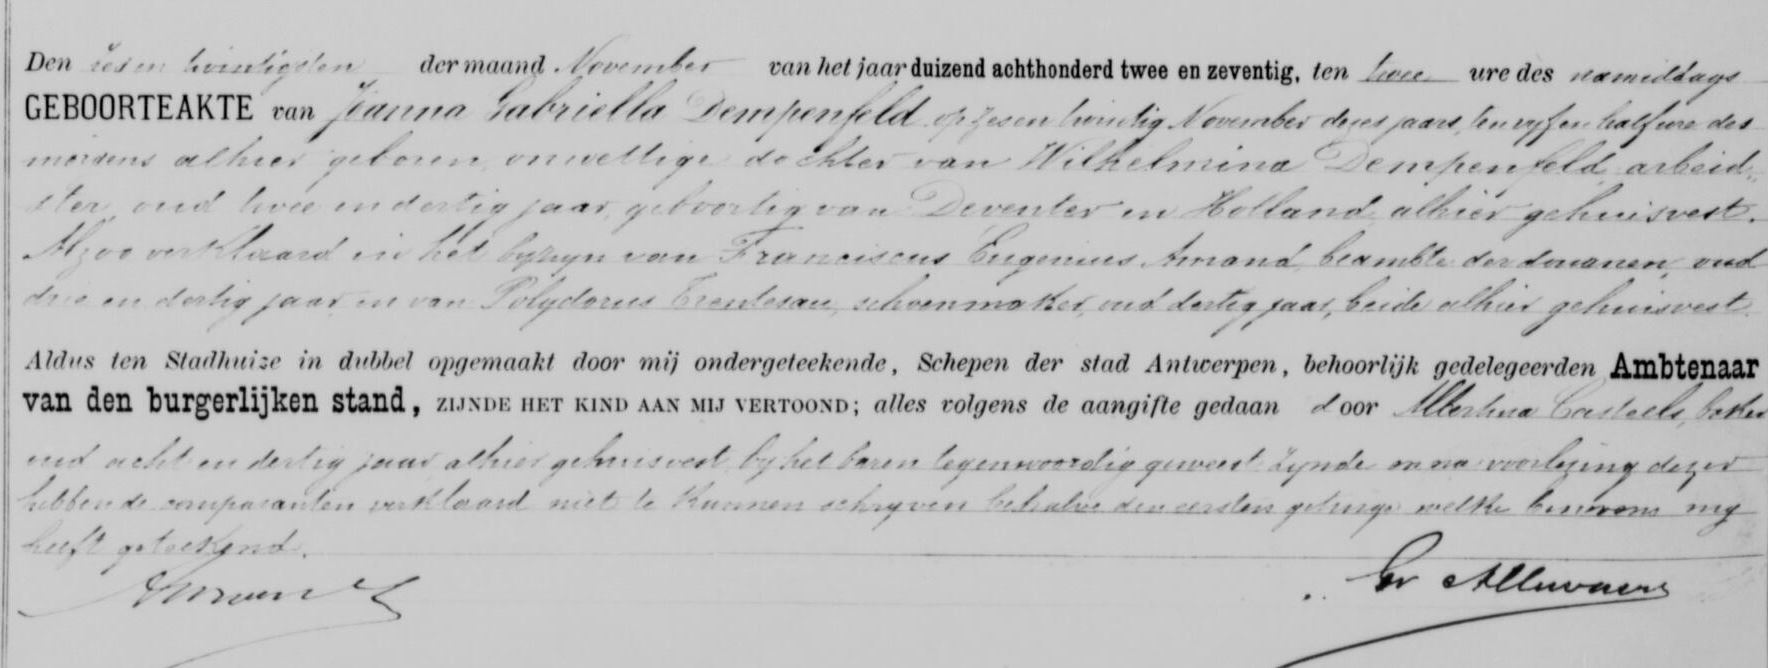 Den zesen twintigsten der maand November van het jaar duizend achthonderd twee en zeventig, ten twee ure des namiddags
GEBOORTEAKTE van Joanna Gabriella Dempenfeld op zesen twintig November dezes jaars, ten vyf en half ure des
morgens alhier geboren, onwettige dochter van Wilhelmina Dempenfeld, arbeid„
ster, oud twee en dertig jaar, geboortig van Deventer in Holland, alhier gehuisvest.
Alzoo verklaard in het byzyn van Franciscus Eugenius Amand, beambte der douanen, oud
drie en dertig jaar en van Polydorus Trentesau, schoenmaker, oud dertig jaar, beide alhier gehuisvest.
Aldus ten Stadhuize in dubbel opgemaakt door mij ondergeteekende, Schepen der stad Antwerpen, behoorlijk gedelegeerden Ambtenaar
van den burgerlijken stand, ZIJNDE HET KIND AAN MIJ VERTOOND; alles volgens de aangifte gedaan door Albertina Casteels, baker
oud acht en dertig jaar alhier gehuisvest, by het baren tegenwoordig geweest zynde en na voorlezing dezer
hebben de comparanten verklaard niet te kunnen schryven behalve den eersten getuige welke benevens my
heeft geteekend.
Allewaert